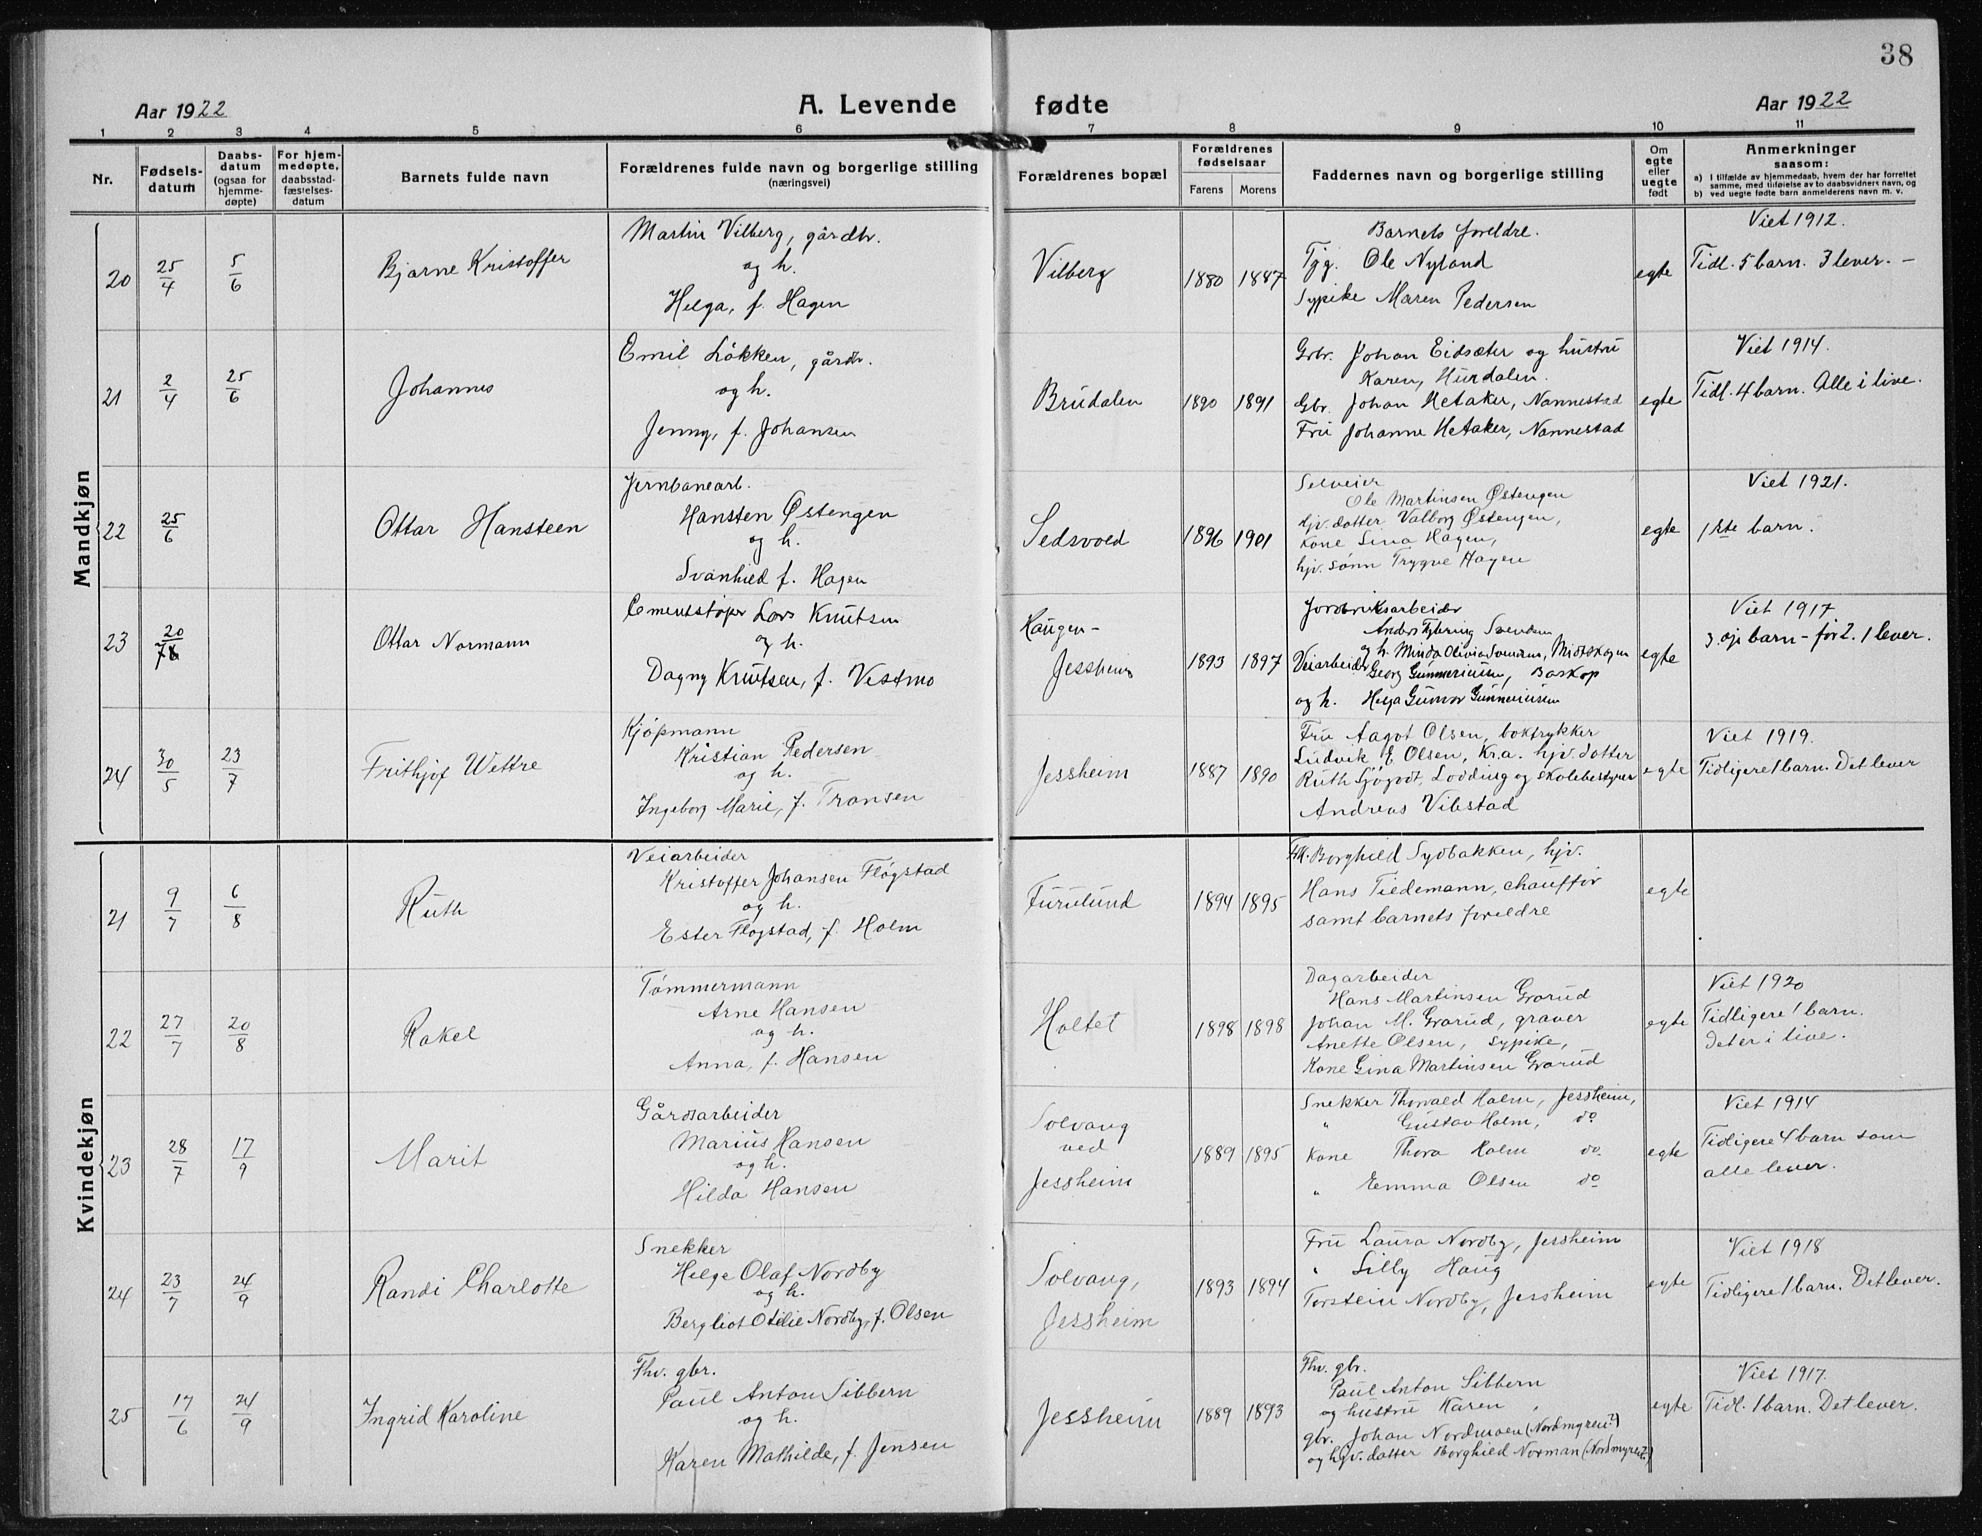 38
Aar 1922
A. Levende fødte
Aar 1922
1 2 3 4 5 6 7 8 9 10 11
Nr.
Fødsels-
datum
Daabs-
datum
(ogsaa for
hjemme-
døpte)
For hjem-
medøpte,
daabsstad-
fæstelses-
datum
Barnets fulde navn
Forældrenes fulde navn og borgerlige stilling
(næringsvei)
Forældrenes bopæl
Forældrenes
fødselsaar
Farens Morens
Faddernes navn og borgerlige stilling
Om
egte
eller
uegte
født
Anmerkninger
saasom:
a) I tilfælde av hjemmedaab, hvem der har forrettet
samme, med tilføielse av to daabsvidners navn, og
b) ved uegte fødte barn anmelderens navn m. v.
Mandkjøn
20 25/4 5/6 Bjarne Kristoffer
Martin Vilberg, gårdbr.
og h.
Helga, f. Hagen
Vilberg 1880 1887
Barnets foreldre.
Tjg. Ole Nyland
Sypike Maren Pedersen
egte
Viet 1912.
Tidl. 5 barn. 3 lever. –
21 2/4 25/6 Johannes
Emil Løkken, gårdbr.
og h.
Jenny, f. Johansen
Brudalen 1890 1891
Grbr. Johan Eidsæter og hustru
Karen, Hurdalen.
Gbr. Johan Hetaker, Nannestad
Fru Johanne Hetaker, Nannestad
egte
Viet 1914.
Tidl. 4 barn. Alle i live.
22 25/6 Ottar Hansteen
Jernbanearb.
Hansten Østengen
og h.
Svanhild f. Hagen
1896 1901
Selveier
Ole Martinsen Østengen
hjv. datter Valborg Østengen,
Kone Lina Hagen,
hjv. sønn Trygve Hagen
egte
Viet 1921.
1ste barn.
23 20/7 Ottar Normann
Cementstøper Lars Knutsen
og h.
Dagny Knutsen, f. Vestmo
Haugen–
Jessheim
1893 1897
Jordbruksarbeider
Anders Svendsen
og h. Minda Olivia Svendsen, Midtskogen
Veiarbeider Georg Gunneriusen, Baskop
og h. Helga Gunvor Gunneriusen
egte
Viet 1917
3. barn – før 2. 1 lever.
24 30/5 23/7 Frithjof Wettre
Kjøpmann
Kristian Pedersen
og h.
Ingeborg Marie, f. Fransen
Jessheim 1887 1890
Fru Aagot Olsen, boktrykker
Ludvik E Olsen, Kra. hjv. datter
Ruth Sjøgodt, Lodding og skolebestyrer
Andreas Vibstad
egte
Viet 1919.
Tidligere 1 barn. Det lever
Kvindekjøn
21 9/7 6/8 Ruth
Veiarbeider
Kristoffer Johansen Fløgstad
og h.
Ester Fløgstad, f. Holm
Furulund 1894 1895
Frk. Borghild Sydbakken, hjv.
Hans Tiedemann, chauffør
samt barnets foreldre
egte
22 27/7 20/8 Rakel
Tømmermann
Arne Hansen
og h.
Anna, f. Hansen
Holtet 1898 1898
Dagarbeider
Hans Martinsen Grorud
Johan M. Grorud, graver
Anette Olsen, sypike,
Kone Gina Martinsen Grorud
egte
Viet 1920
Tidligere 1 barn.
det er i live.
23 28/7 17/9 Marit
Gårdsarbeider
Marius Hansen
og h.
Hilda Hansen
Solvang
ved
Jessheim
1889 1895
Snekker Thorvald Holm, Jessheim,
" Gustav Holm, do
Kone Thora Holm do.
" Emma Olsen do
egte
Viet 1914
Tidligere 4 barn som
alle lever.
24 23/7 24/9 Randi Charlotte
Snekker
Helge Olaf Nordby
og h.
Bergliot Otelie Nordby, f. Olsen
Solvang,
Jessheim
1893 1894
Fru Laura Nordby, Jessheim
" Lilly Haug
Torstein Nordby, Jessheim
egte
Viet 1918
Tidligere 1 barn. Det lever.
25 17/6 24/9 Ingrid Karoline
Fhv. gbr.
Paul Anton Sibbern
og h.
Karen Mathilde, f. Jensen
Jessheim 1889 1893
Fhv. gbr.
Paul Anton Sibbern
og hustru Karen
gbr. Johan Nordmoen (Nordmyren?)
og hjv. datter Borghild Norman (Nordmyren?)
egte
Viet 1917.
Tidl. 1 barn. Det lever.